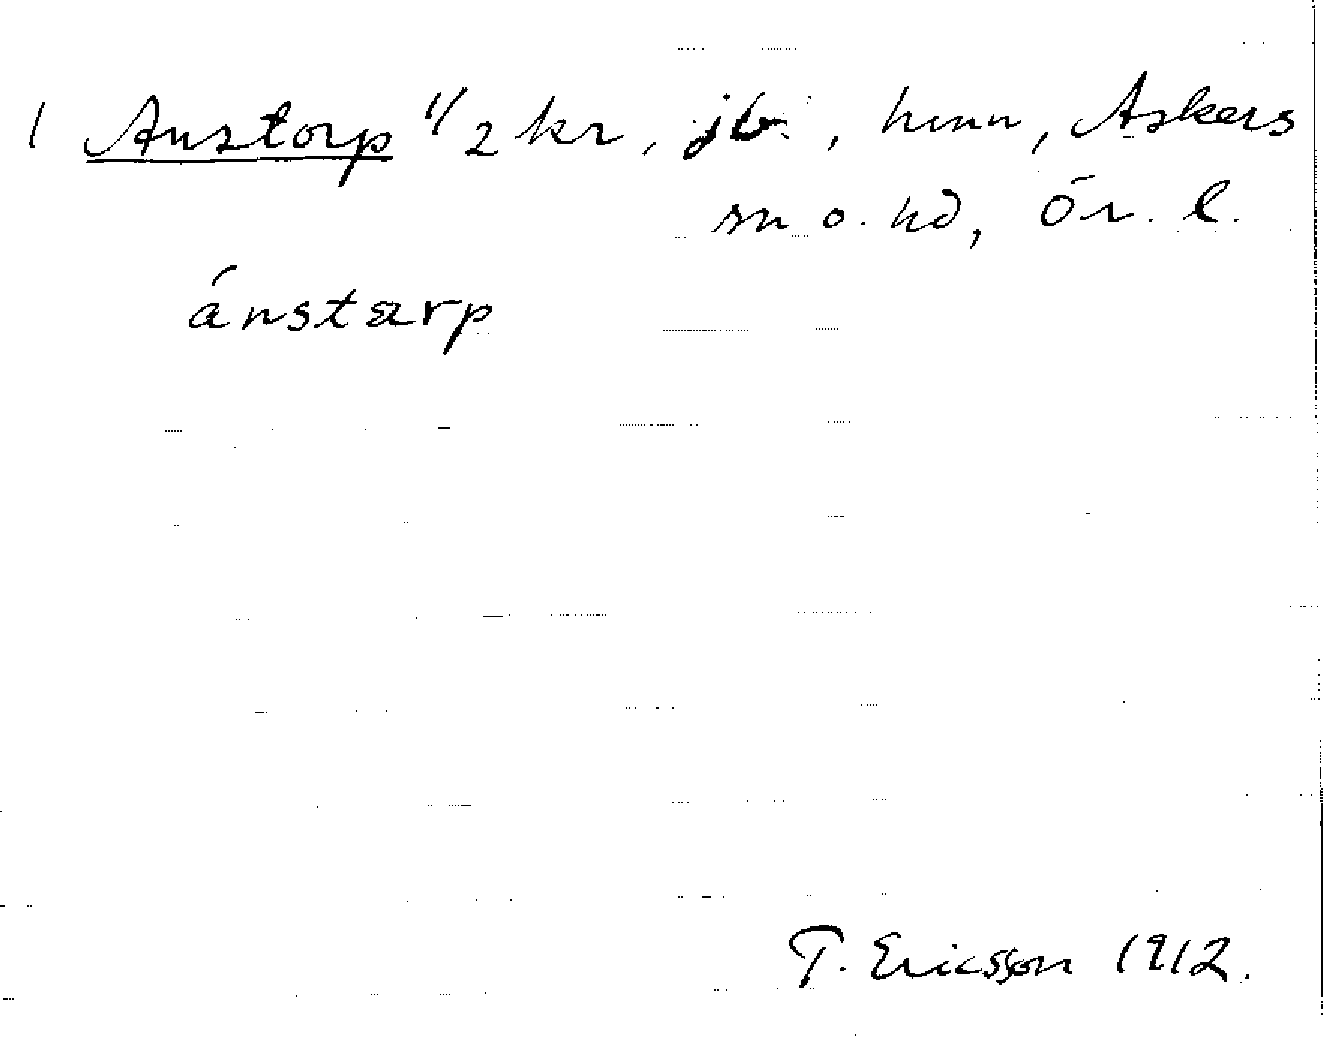 1 Anstorp 1/2 kr, jb, hmn, Askers
sn o. hd, Ör. l.
ánstærp
T. Ericsson 1912.